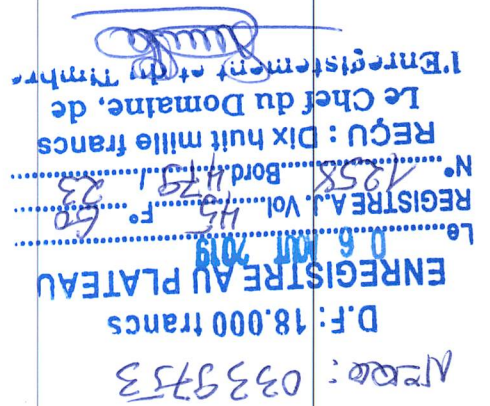 N°: 0339753
D.F: 18.000 francs
ENREGISTRE AU PLATEAU
Le 06 AOUT 2019
REGISTRE A.J. Vol. 45 F° 60
N° 1258 Bord. 479 / 23
REÇU : Dix huit mille francs
Le Chef du Domaine, de
l'Enregistrement et du Timbre